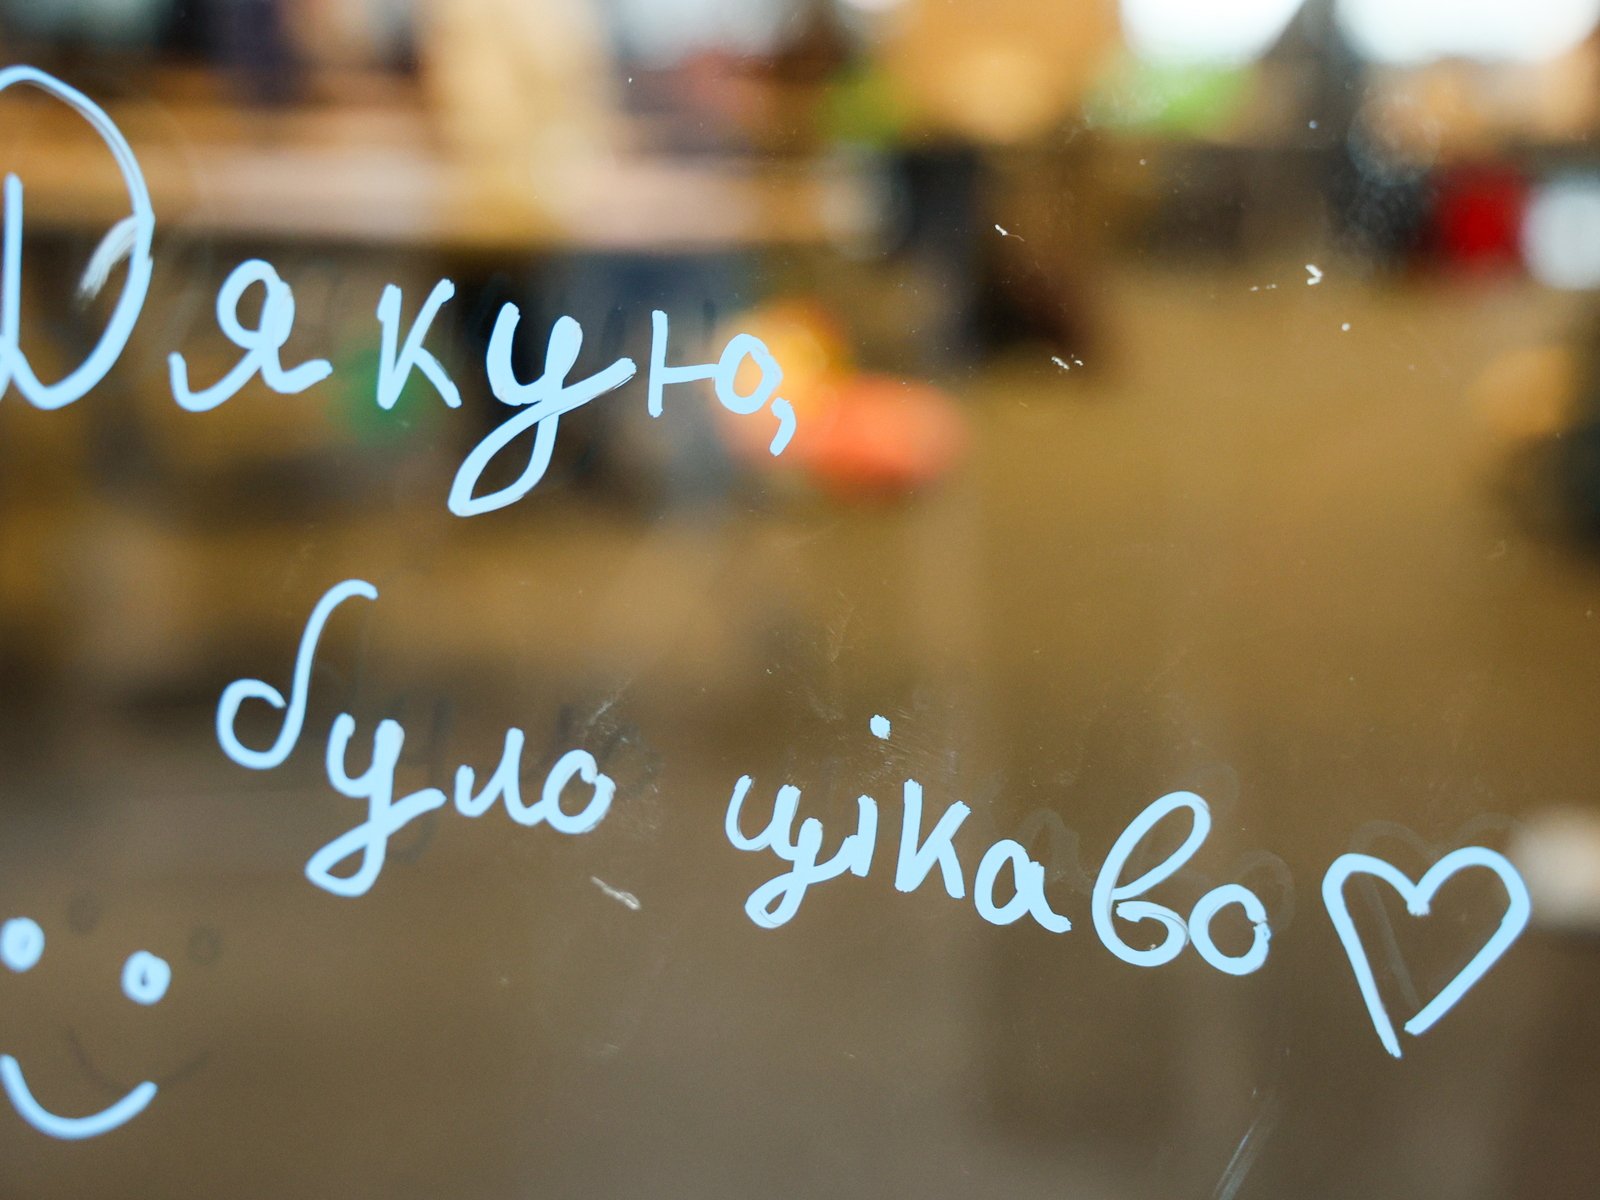 Дякую,
було цікаво